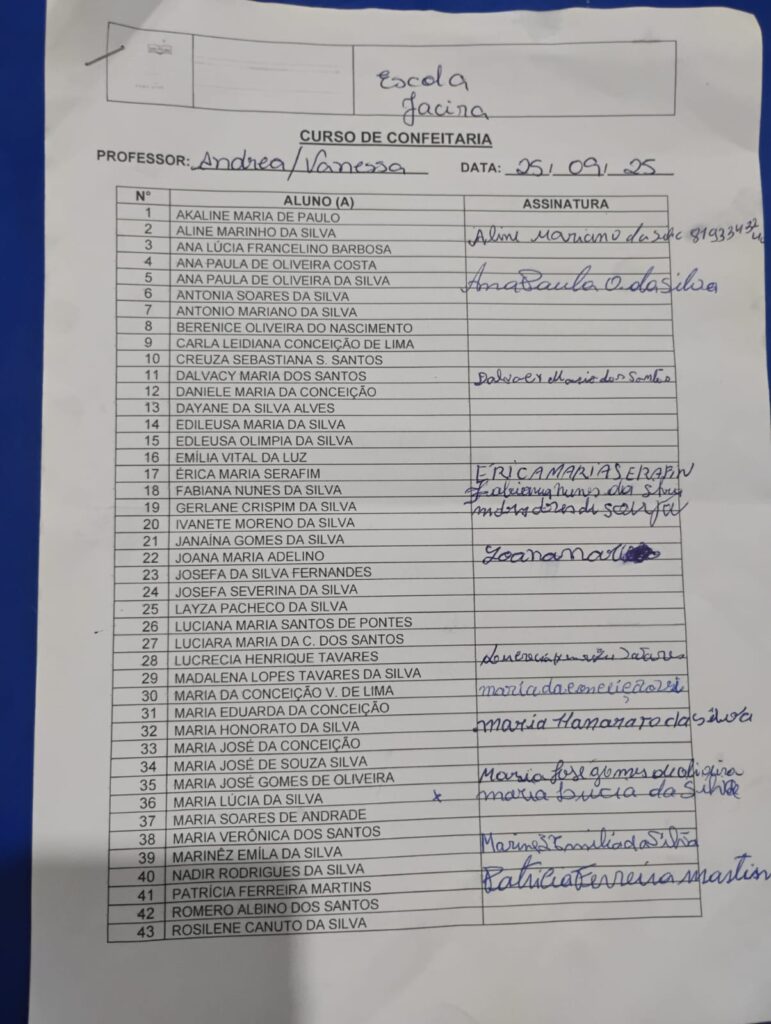 Escola
Jacira
CURSO DE CONFEITARIA
PROFESSOR: Andrea/Vanessa DATA: 25/09/25
N° ALUNO (A) ASSINATURA
1 AKALINE MARIA DE PAULO
2 ALINE MARINHO DA SILVA Aline Mariano da
3 ANA LÚCIA FRANCELINO BARBOSA
4 ANA PAULA DE OLIVEIRA COSTA
5 ANA PAULA DE OLIVEIRA DA SILVA Ana Paula O. da Silva
6 ANTONIA SOARES DA SILVA
7 ANTONIO MARIANO DA SILVA
8 BERENICE OLIVEIRA DO NASCIMENTO
9 CARLA LEIDIANA CONCEIÇÃO DE LIMA
10 CREUZA SEBASTIANA S. SANTOS
11 DALVACY MARIA DOS SANTOS Maria dos Santos
12 DANIELE MARIA DA CONCEIÇÃO
13 DAYANE DA SILVA ALVES
14 EDILEUSA MARIA DA SILVA
15 EDLEUSA OLIMPIA DA SILVA
16 EMÍLIA VITAL DA LUZ
17 ÉRICA MARIA SERAFIM ERICA MARIA SERAFIN
18 FABIANA NUNES DA SILVA Fabiana Nunes da Silva
19 GERLANE CRISPIM DA SILVA
20 IVANETE MORENO DA SILVA
21 JANAÍNA GOMES DA SILVA
22 JOANA MARIA ADELINO Joana
23 JOSEFA DA SILVA FERNANDES
24 JOSEFA SEVERINA DA SILVA
25 LAYZA PACHECO DA SILVA
26 LUCIANA MARIA SANTOS DE PONTES
27 LUCIARA MARIA DA C. DOS SANTOS
28 LUCRECIA HENRIQUE TAVARES
29 MADALENA LOPES TAVARES DA SILVA
30 MARIA DA CONCEIÇÃO V. DE LIMA maria da conceição
31 MARIA EDUARDA DA CONCEIÇÃO
32 MARIA HONORATO DA SILVA maria Hanarato da silva
33 MARIA JOSÉ DA CONCEIÇÃO
34 MARIA JOSÉ DE SOUZA SILVA
35 MARIA JOSÉ GOMES DE OLIVEIRA Maria José gomes de oliveira
36 MARIA LÚCIA DA SILVA x maria Lucia da Silva
37 MARIA SOARES DE ANDRADE
38 MARIA VERÔNICA DOS SANTOS
39 MARINÊZ EMÍLA DA SILVA Marinêz Emilia da Silva
40 NADIR RODRIGUES DA SILVA
41 PATRÍCIA FERREIRA MARTINS Patricia Ferreira martin
42 ROMERO ALBINO DOS SANTOS
43 ROSILENE CANUTO DA SILVA